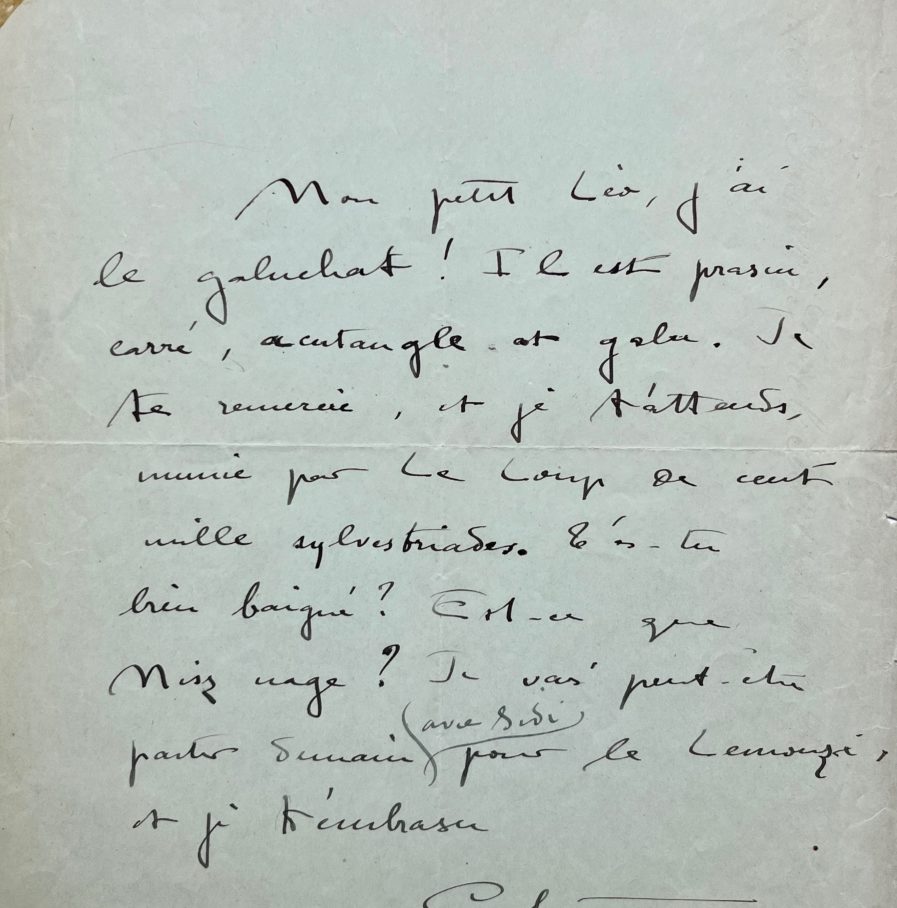 Mon petit Léo, j'ai
le galuchat ! Il est prasin,
carré, acutangle et galu. Je
te remercie, et je t'attends,
munie par Le Loup de cent
mille sylvestriades. T'es-tu
bien baigné ? Est-ce que
Misz nage ? Je vais peut-être
partir demain (avec Sidi) pour le Lemouzi,
et je t'embrasse